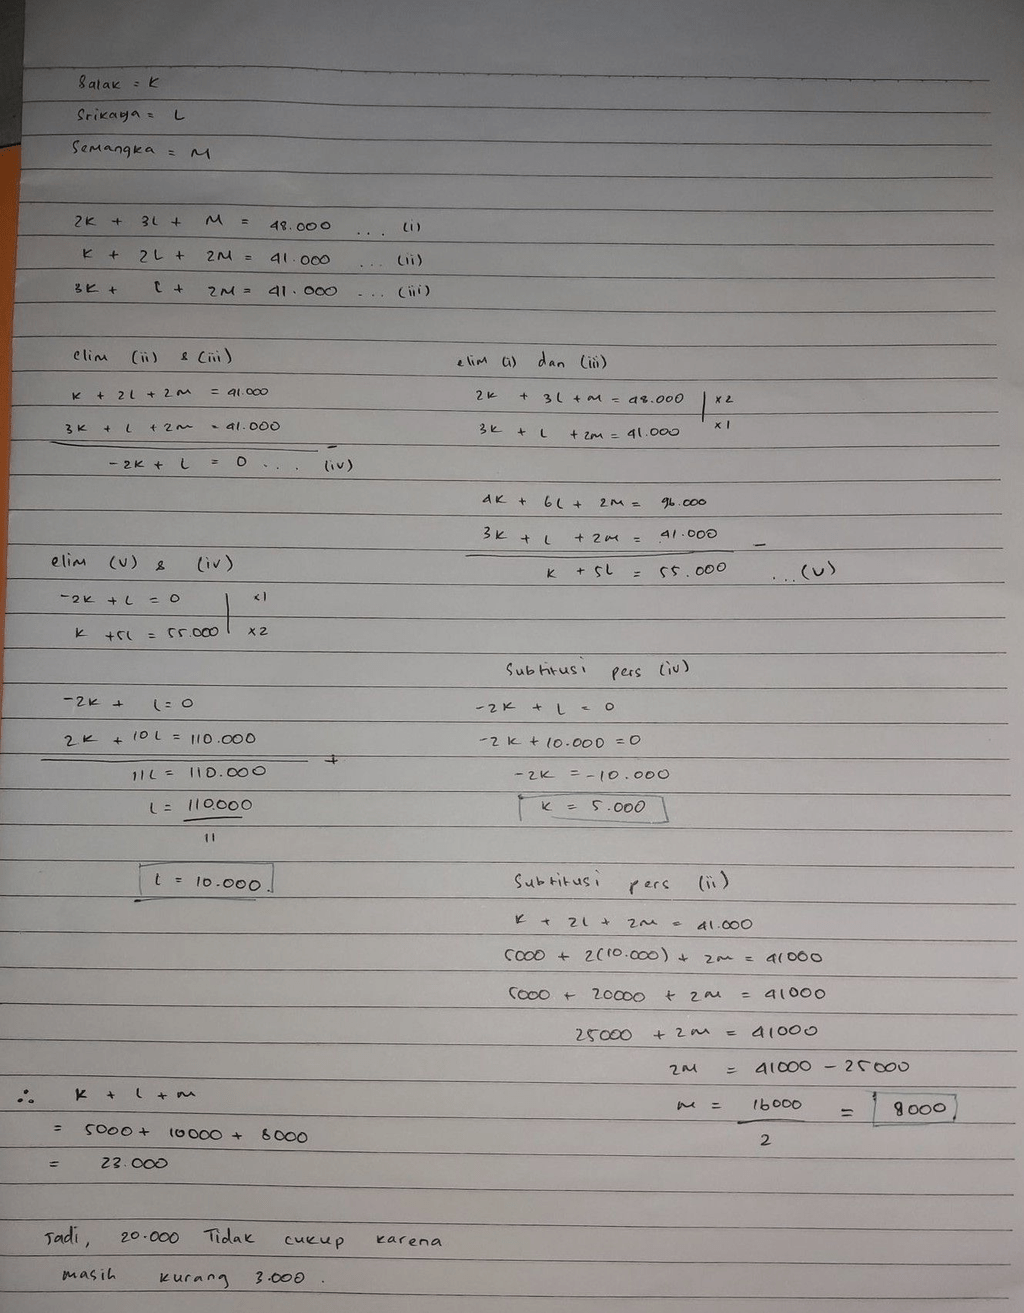 Salak = K
Srikaya = L
Semangka = M
2K + 3L + M = 48.000 ... (i)
K + 2L + 2M = 41.000 ... (ii)
3K + L + 2M = 41.000 ... (iii)
elim (ii) & (iii)
K + 2L + 2M = 41.000
3K + L + 2M = 41.000 -
-2K + L = 0 ... (iv)
elim (i) dan (iii)
2K + 3L + M = 48.000 | x2
3K + L + 2M = 41.000 | x1
4K + 6L + 2M = 96.000
3K + L + 2M = 41.000 -
K + 5L = 55.000 ...(v)
elim (v) & (iv)
-2K + L = 0 | x1
K + 5L = 55.000 | x2
-2K + L = 0
2K + 10L = 110.000 +
11L = 110.000
L = 110.000
11
L = 10.000.
Subtitusi pers (iv)
-2K + L = 0
-2K + 10.000 = 0
-2K = -10.000
K = 5.000
Subtitusi pers (ii)
K + 2L + 2M = 41.000
5000 + 2(10.000) + 2M = 41000
5000 + 20000 + 2M = 41000
25000 + 2M = 41000
2M = 41000 - 25000
M = 16000 = 8000
2
∴ K + L + M
= 5000 + 10000 + 8000
= 23.000
Jadi, 20.000 Tidak cukup karena
masih kurang 3.000.